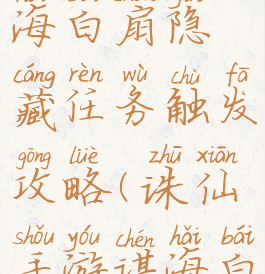 海白扇隐
cáng rèn wù chù fā
藏任务触发
gōng lüè zhū xiān
攻略(诛仙
shǒu yóu chén hǎi bái
手游谌海白